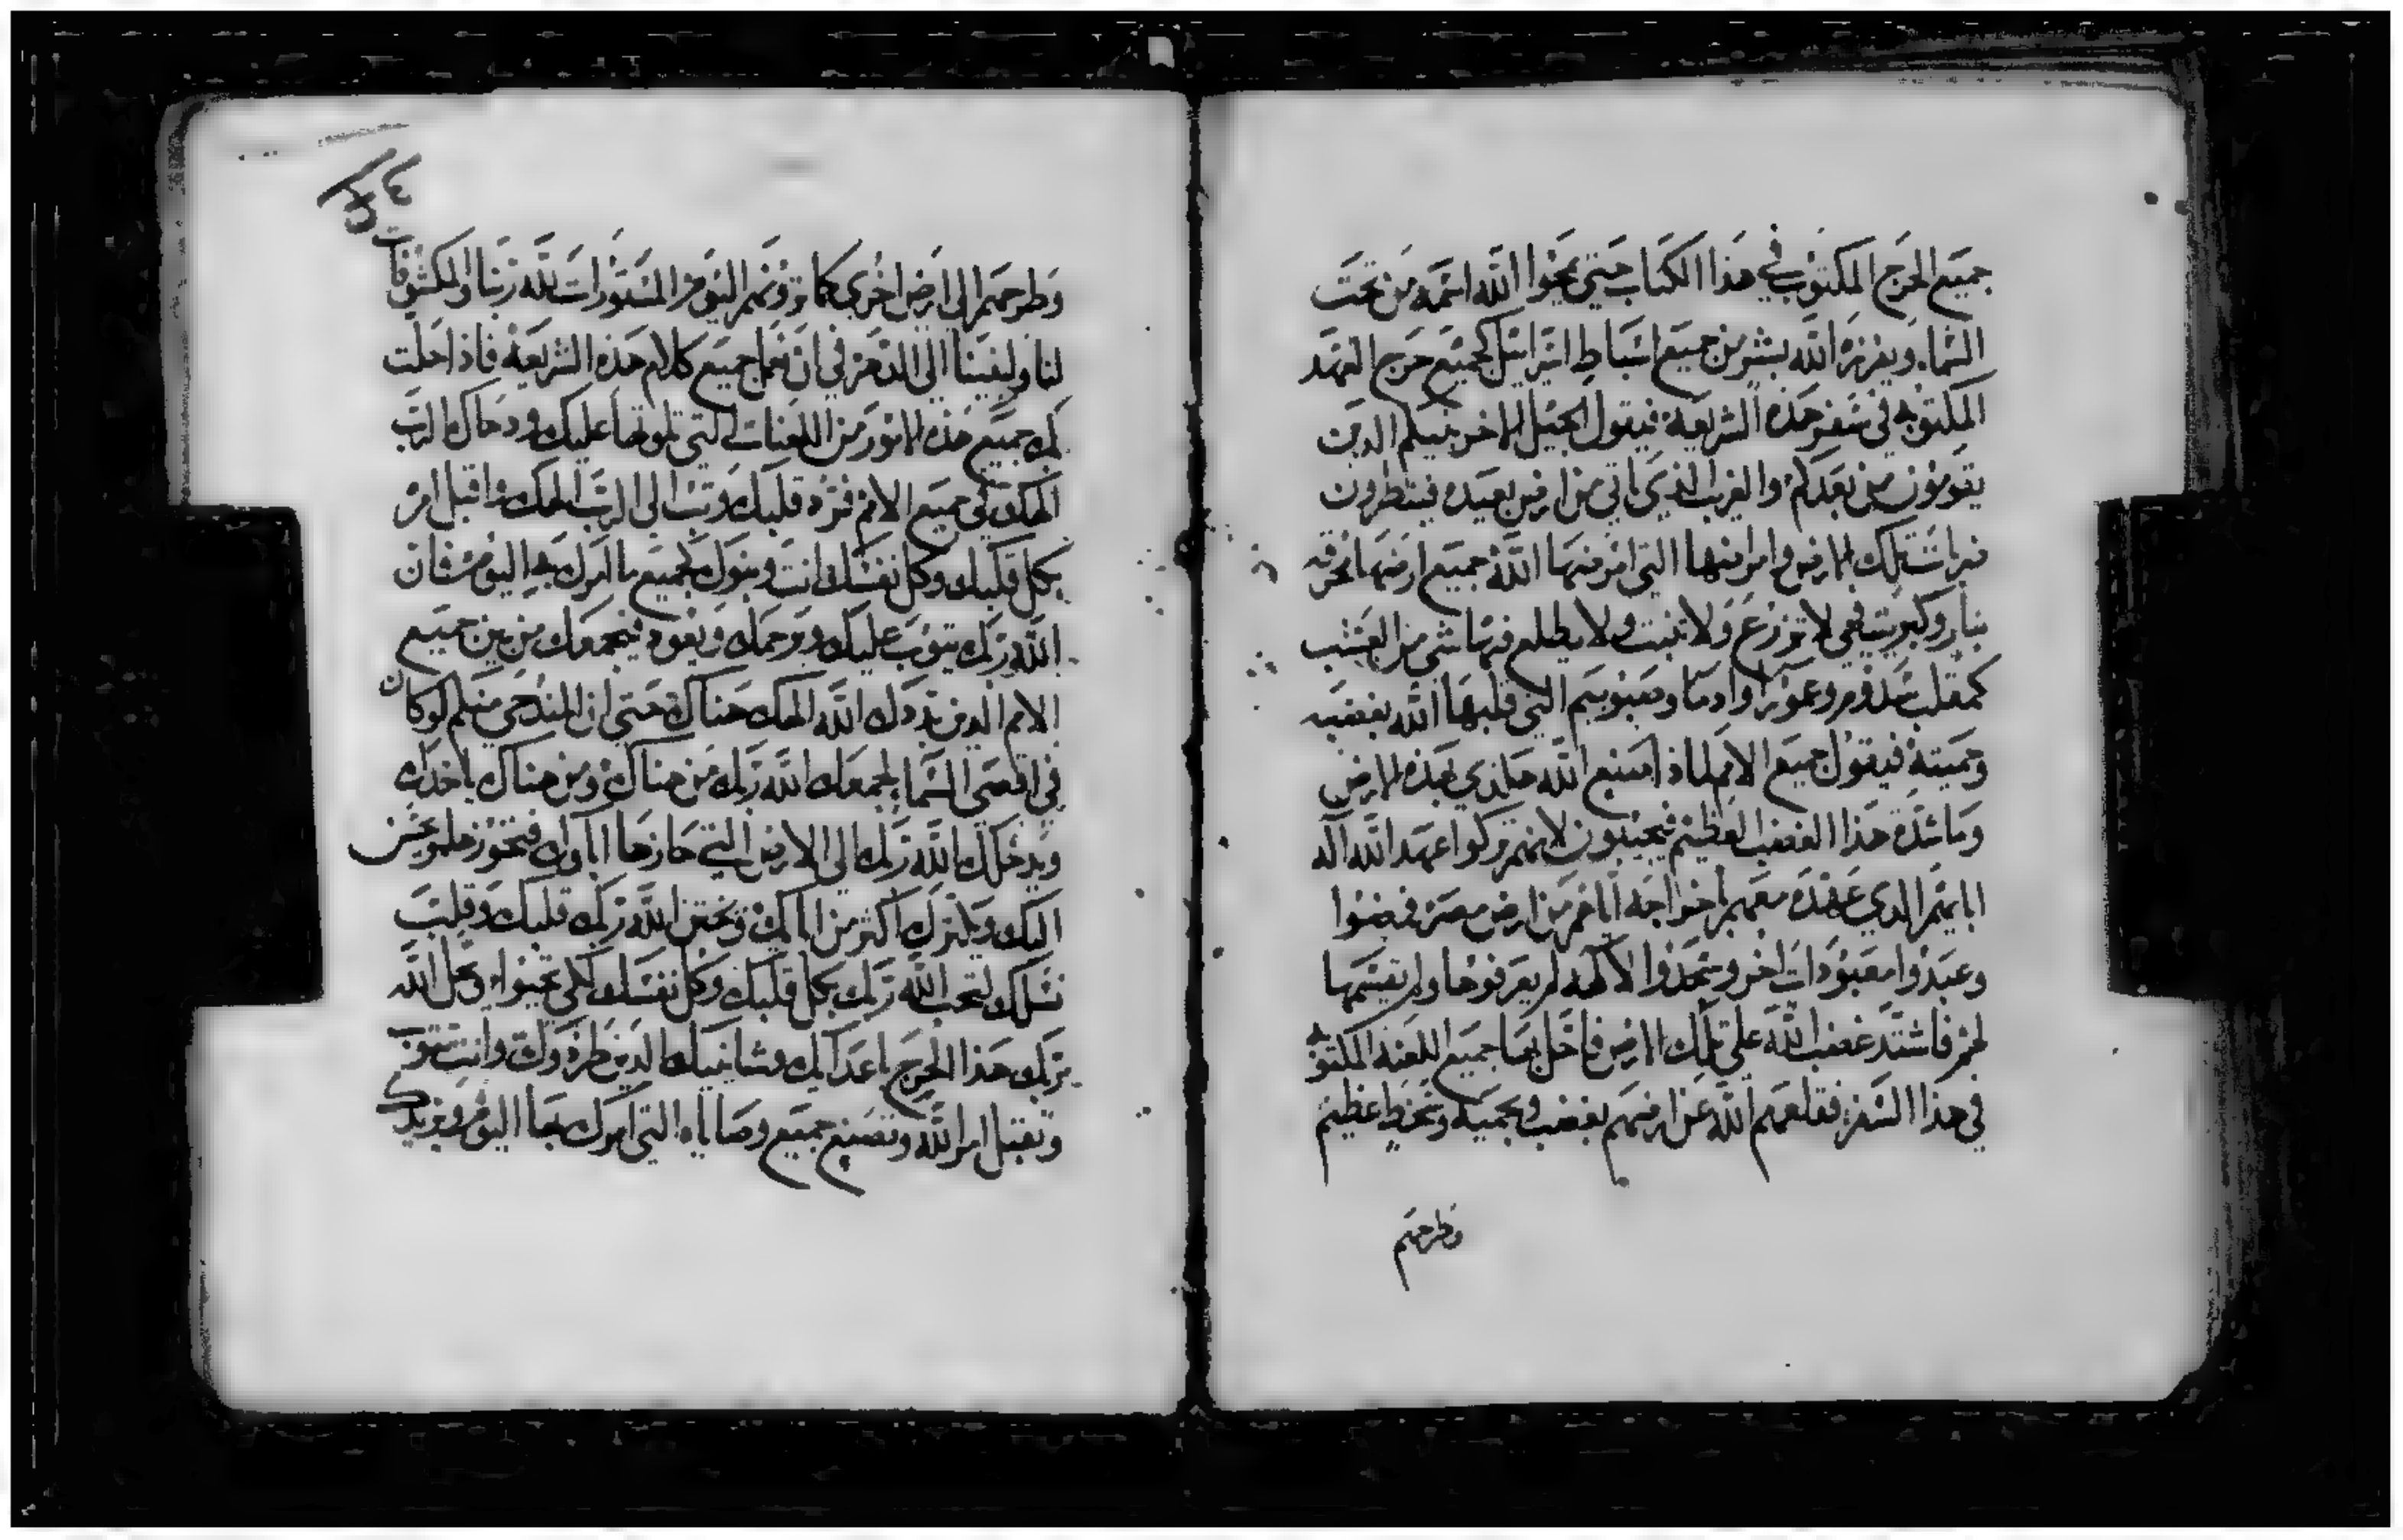 جميع الحرج المكتوب في هذا الكتاب حتي يمحوا الله اسمه من تحت
السماء ويفرزه الله بشر من جميع اسباط اسراييل كجميع حرج العهد
المكتوبه في سفر هذه الشريعة فيقول الجيل الاخر بنيكم الدين
يقومون من بعدكم والغريب الذي ياتي من ارض بعيده فينظرون
ضربات تلك الارض وامراضها التي امرضها الله جميع ارضها محرقه
بنار وكبريت فهي لا تزرع ولا تنبت ولا يطلع فيها شي من العشب
كمقلب سدوم وعمورا وادما وصبويم التي قلبها الله بغضبه
وحميته فيقول جميع الامم لماذا صنع الله هاكذي بهذه الارض
وما شدة هذا الغضب العظيم فيجيبون لانهم تركوا عهد الله اله
ابايهم الدي عهده معهم باخراجه اياهم من ارض مصر فمضوا
وعبدوا معبودات اخر وسجدوا لالهه لم يعرفوها ولم يقسمها
لهم فاشتد غضب الله علي تلك الارض فاحل بها جميع اللعنه المكتوبه
في هذا السفر فقلعهم الله عن ارضهم بغضب وبحميه وسخط عظيم
وطرحهم
وطرحهم الى ارض اخري كما ترونهم اليوم المستورات لله ربنا والمكشوفات
لنا ولبنينا الي الدهر في ان نعمل جميع كلام هذه الشريعة فاذا حلت
بك جميع هذه الامور من اللعنات التي تلوتها عليك ودحاك الرب
الهك في جميع الامم فترد قلبك وتب الى الرب الهك واقبل امره
بكل قلبك وكل نفسك انت وبنوك بجميع ما امرك به اليوم فان
الله ربك يتوب عليك ويرحمك ويعود فيجمعك من بين جميع
الامم الدين بددك الله الهك هناك حتى ان المندحي منكم لو كان
في اقصى السما ليجمعك الله ربك من هناك ومن هناك ياخدك
ويدخلك الله ربك الى الارض التي حازها اباوك فتحوزها ويحسن
اليك ويكترك اكثر من اباك ويختن الله ربك قلبك وقلب
نسلك لتحب الله ربك بكل قلبك وكل نفسك لكي تحيوا ويحل الله
ربك هذا الحرج باعدايك وشانيك الدين طردوك وانت تتوب
وتقبل امر الله وتصنع جميع وصاياه التي امرك بها اليوم ويزيدك